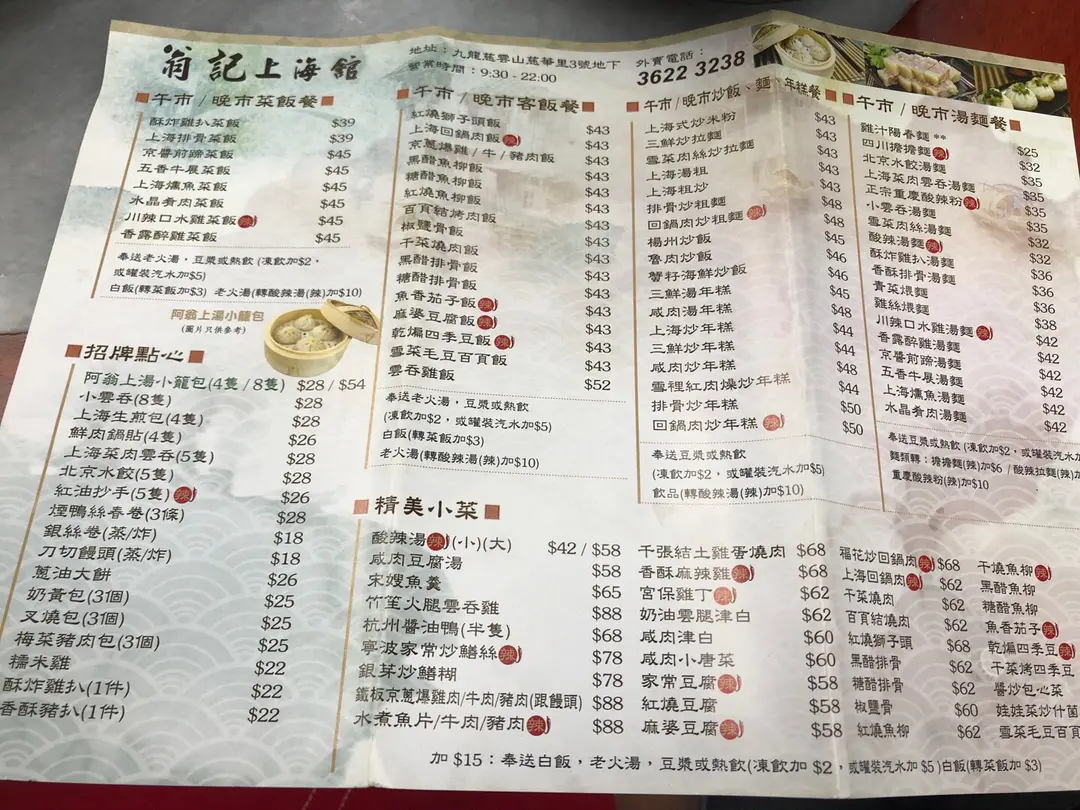 翁記上海館
地址：九龍慈雲山慈華里3號地下
營業時間：9:30 - 22:00
外賣電話：
3622 3238
午市 / 晚市菜飯餐
酥炸雞扒菜飯 $39
上海排骨菜飯 $39
京醬煎蹄菜飯 $45
五香牛展菜飯 $45
上海燻魚菜飯 $45
水晶肴肉菜飯 $45
川辣口水雞菜飯(辣) $45
香露醉雞菜飯 $45
奉送老火湯，豆漿或熱飲 (凍飲加$2，
或罐裝汽水加$5)
白飯(轉菜飯加$3) 老火湯(轉酸辣湯(辣)加$10)
阿翁上湯小籠包
(圖片只供參考)
招牌點心
阿翁上湯小籠包(4隻 / 8隻) $28 / $54
小雲吞(8隻) $28
上海生煎包(4隻) $28
鮮肉鍋貼(4隻) $26
上海菜肉雲吞(5隻) $28
北京水餃(5隻) $28
紅油抄手(5隻)(辣) $26
煙鴨絲春卷(3條) $28
銀絲卷(蒸/炸) $18
刀切饅頭(蒸/炸) $18
蔥油大餅 $26
奶黃包(3個) $25
叉燒包(3個) $25
梅菜豬肉包(3個) $25
糯米雞 $22
酥炸雞扒(1件) $22
香酥豬扒(1件) $22
午市 / 晚市客飯餐
紅燒獅子頭飯 $43
上海回鍋肉飯(辣) $43
京蔥爆雞 / 牛 / 豬肉飯 $43
黑醋魚柳飯 $43
糖醋魚柳飯 $43
紅燒魚柳飯 $43
百頁結烤肉飯 $43
椒鹽骨飯 $43
干菜燒肉飯 $43
黑醋排骨飯 $43
糖醋排骨飯 $43
魚香茄子飯(辣) $43
麻婆豆腐飯(辣) $43
乾煸四季豆飯(辣) $43
雪菜毛豆百頁飯 $43
雲吞雞飯 $52
奉送老火湯，豆漿或熱飲
(凍飲加$2，或罐裝汽水加$5)
白飯(轉菜飯加$3)
老火湯(轉酸辣湯(辣)加$10)
午市 / 晚市炒飯、麵、年糕餐
上海式炒米粉 $43
三鮮炒拉麵 $43
雪菜肉絲炒拉麵 $43
上海湯粗 $43
上海粗炒 $43
排骨炒粗麵 $48
回鍋肉炒粗麵(辣) $48
楊州炒飯 $45
魯肉炒飯 $46
蟹籽海鮮炒飯 $46
三鮮湯年糕 $45
咸肉湯年糕 $48
上海炒年糕 $44
三鮮炒年糕 $44
咸肉炒年糕 $48
雪裡紅肉燥炒年糕 $44
排骨炒年糕 $50
回鍋肉炒年糕(辣) $50
奉送豆漿或熱飲
(凍飲加$2，或罐裝汽水加$5)
飲品(轉酸辣湯(辣)加$10)
午市 / 晚市湯麵餐
雞汁陽春麵 ** $25
四川擔擔麵(辣) $32
北京水餃湯麵 $35
上海菜肉雲吞湯麵 $35
正宗重慶酸辣粉(辣) $35
小雲吞湯麵 $32
雪菜肉絲湯麵 $32
酸辣湯麵(辣) $36
酥炸雞扒湯麵 $36
香酥排骨湯麵 $36
青菜煨麵 $38
雞絲煨麵 $42
川辣口水雞湯麵(辣) $42
香露醉雞湯麵 $42
京醬煎蹄湯麵 $42
五香牛展湯麵 $42
上海燻魚湯麵 $42
水晶肴肉湯麵 $42
奉送豆漿或熱飲 (凍飲加$2，或罐裝汽水加
麵類轉：擔擔麵(辣)加$6 / 酸辣拉麵(辣)加
重慶酸辣粉(辣)加$10
精美小菜
酸辣湯(辣)(小)(大) $42 / $58
咸肉豆腐湯 $58
宋嫂魚羹 $65
竹笙火腿雲吞雞 $88
杭州醬油鴨(半隻) $68
寧波家常炒鱔絲(辣) $78
銀芽炒鱔糊 $78
鐵板京蔥爆雞肉/牛肉/豬肉(跟饅頭) $88
水煮魚片/牛肉/豬肉(辣) $88
千張結土雞蛋燒肉 $68
香酥麻辣雞(辣) $68
宮保雞丁(辣) $62
奶油雲腿津白 $62
咸肉津白 $60
咸肉小唐菜 $60
家常豆腐(辣) $58
紅燒豆腐 $58
麻婆豆腐(辣) $58
福花炒回鍋肉(辣) $68
上海回鍋肉(辣) $62
干菜燒肉 $62
百頁結燒肉 $62
紅燒獅子頭 $68
黑醋排骨 $62
糖醋排骨 $62
椒鹽骨 $60
紅燒魚柳 $62
干燒魚柳(辣)
黑醋魚柳
糖醋魚柳
魚香茄子(辣)
乾煸四季豆(辣)
干菜烤四季豆
醬炒包心菜
娃娃菜炒什菌
雪菜毛豆百頁
加 $15：奉送白飯，老火湯，豆漿或熱飲(凍飲加 $2，或罐裝汽水加 $5 )白飯(轉菜飯加 $3)